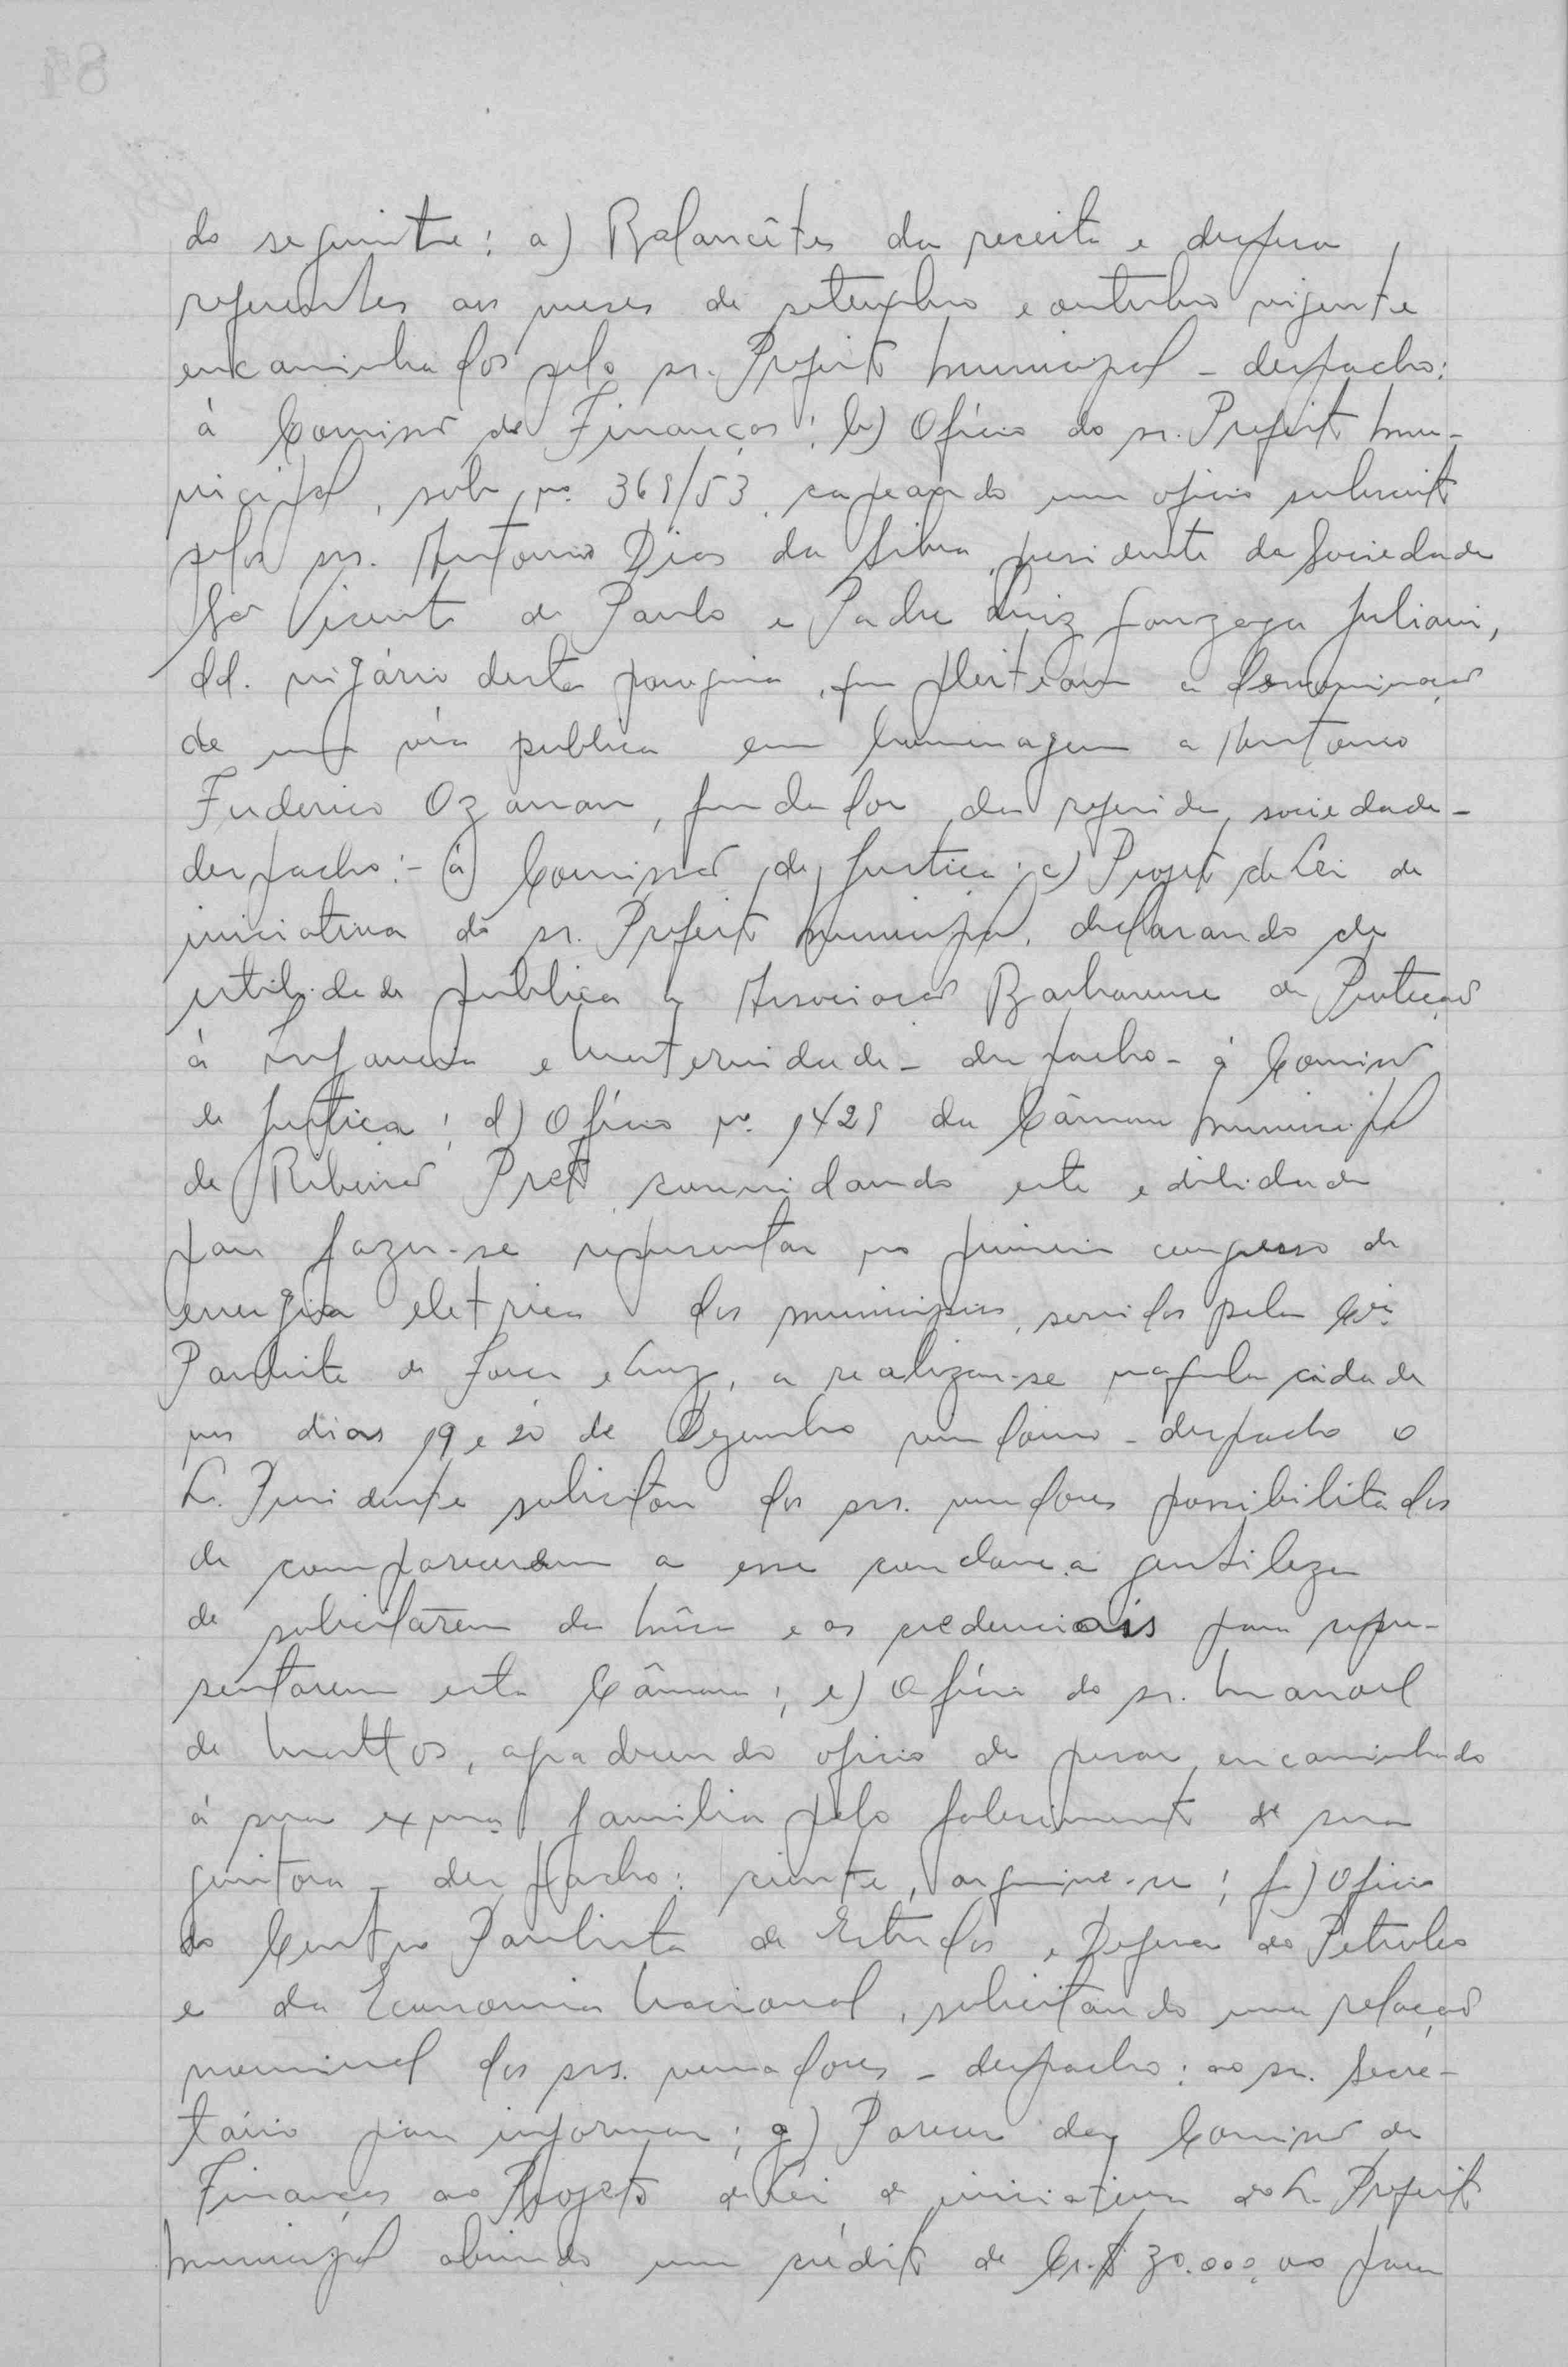 do seguinte: a) Balancêtes da receita e despesa,
referentes aos meses de setembro e outubro vigente
encaminhados pelo sr. Prefeito Municipal - despacho:
á Comissão de Finanças; b) Ofício do sr. Prefeito Mu-
nicipal, sob nº 369/53, capeando um oficio subscrito
pelos srs. Antonio Dias da Silva, presidente da Sociedade
São Vicente de Paulo e Padre Luiz Gonzaga Juliani,
dd. vigário desta paroquia, que pleiteam a denominação
de uma via publica em homenagem a Antonio
Frederico Ozanan, fundador da referida sociedade -
despacho: - á Comissão de Justiça; c) Projeto de Lei de
iniciativa do sr. Prefeito Municipal, declarando de
utilidade pública a Associação Barbarense de Proteção
á Infancia e Maternidade - despacho - á Comissão
de Justiça; d) Ofício nº 1429 da Câmara Municipal
de Ribeirão Preto convidando esta edilidade
para fazer-se representar no primeiro congresso de
energia eletrica dos municipios, servidos pela Cia
Paulista de Força e Luz, a realizar-se naquela cidade
nos dias 19 e 20 de Dezembro vindouro - despacho o
Sr. Presidente solicitou dos srs. vereadores possibilitados
de comparecerem a esse conclave a gentileza
de solicitarem da Mêsa as credenciais para repre-
sentarem esta Câmara; e) Ofício do sr. Manoel
de Mattos, agradecendo oficio de pesar, encaminhado
á sua exma familia pelo falecimento de sua
genitora - despacho: ciente, arquive-se; f) Oficio
do Centro Paulista de Estudos e Defesa do Petroleo
e da Economia Nacional, solicitando uma relação
nominal dos srs. vereadores - despacho: ao sr. Secre-
tário para informar; g) Parecer da Comissão de
Finanças ao Projeto de Lei de iniciativa do Sr. Prefeito
Municipal abrindo um crédito de Cr.$ 30.000,00 para